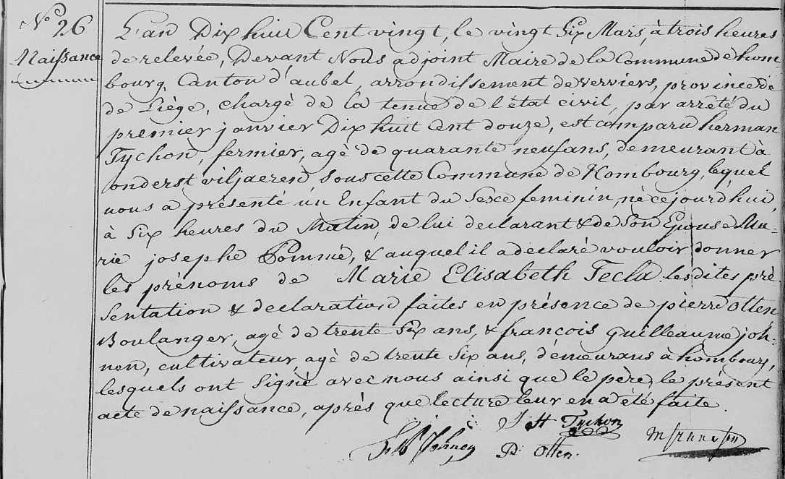 N.º 26
Naissance
L'an Dix huit Cent vingt, le vingt Six Mars, à trois heures
de relevée, Devant Nous adjoint Maire de la Commune de hom
bourg, Canton d'aubel, arrondissement de verviers, province de
de Liège, chargé de la tenue de l'état civil, par arrêté du
premier janvier Dix huit Cent douze, est comparu herman
Tychon, fermier, agé de quarante neuf ans, demeurant à
onderst viljaeren, sous cette Commune de Hombourg, lequel
nous a présenté un Enfant du Sexe feminin, né cejourd'hui,
à Six heures du Matin, de lui declarant & de Son Epouse Ma-
rie josephe Pomme, & auquel il a declaré vouloir donner
les prénoms de Marie Elisabeth Tecla lesdites pré
sentation & declaration faites en présence de pierre Otten
Boulanger, agé de trente Six ans, & françois guilleaume joh-
nen, cultivateur, agé de trente Six ans, demeurans à hombourg,
lesquels ont Signé avec nous ainsi que le père, le présent
acte de naissance, après que lecture leur en a été faite.
J H Tychon
P. Otten.